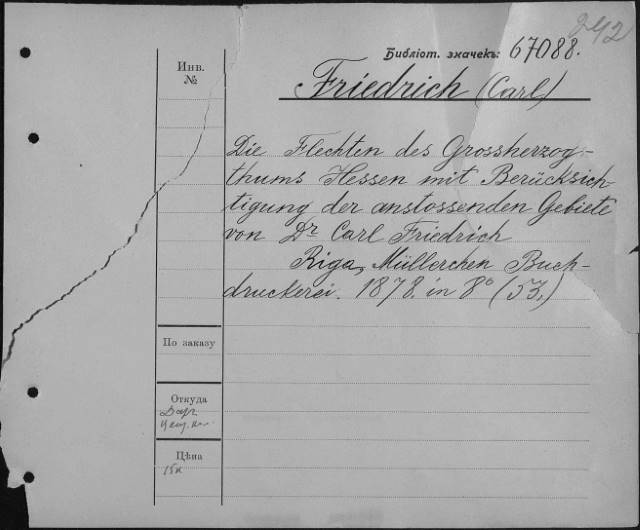 242
Библіот. значекъ: 67088.
Инв.
№
Friedrich (Carl)
Die Flechten des Grossherzog-
thums Hessen mit Berücksich-
tigung der anstossenden Gebiete
von Dr Carl Friedrich
Riga, Müllerchen Buch-
druckerei. 1878. in 8° (53.)
По заказу
Откуда
Даръ
Цѣна
15к